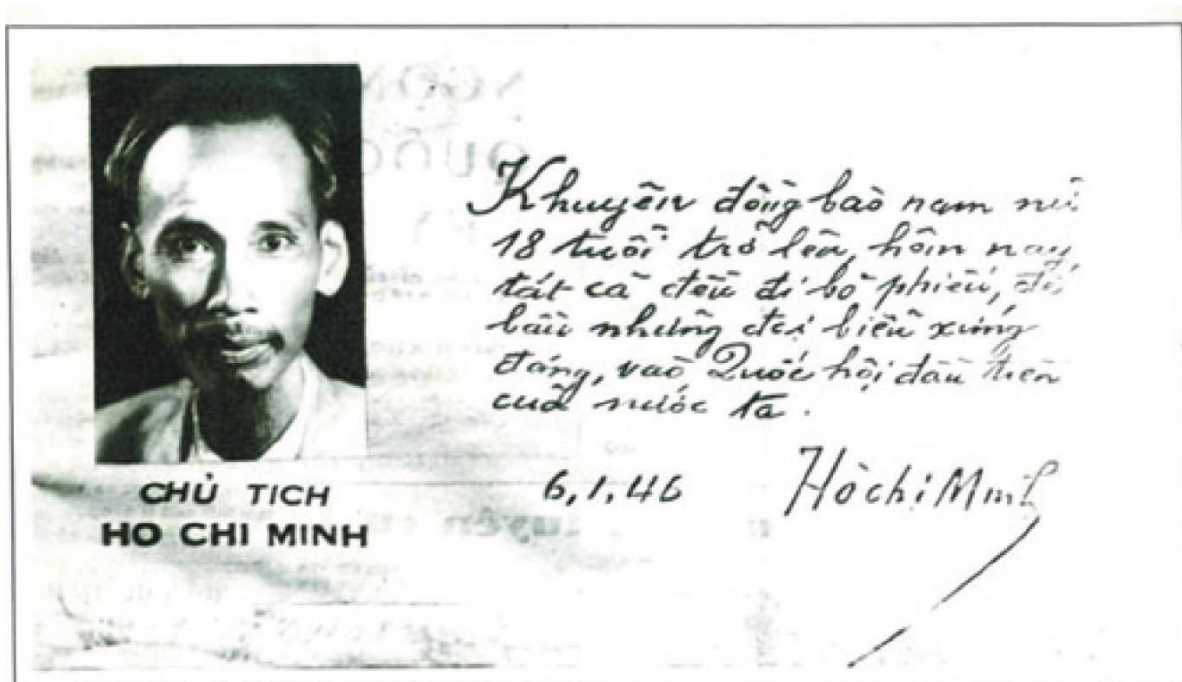 CHỦ TICH
HO CHI MINH
Khuyên đồng bào nam nữ
18 tuổi trở lên, hôm nay
tất cả đều đi bỏ phiếu, để
bầu những đại biểu xứng
đáng, vào Quốc hội đầu tiên
của nước ta.
6.1.46
Hồ chí Minh